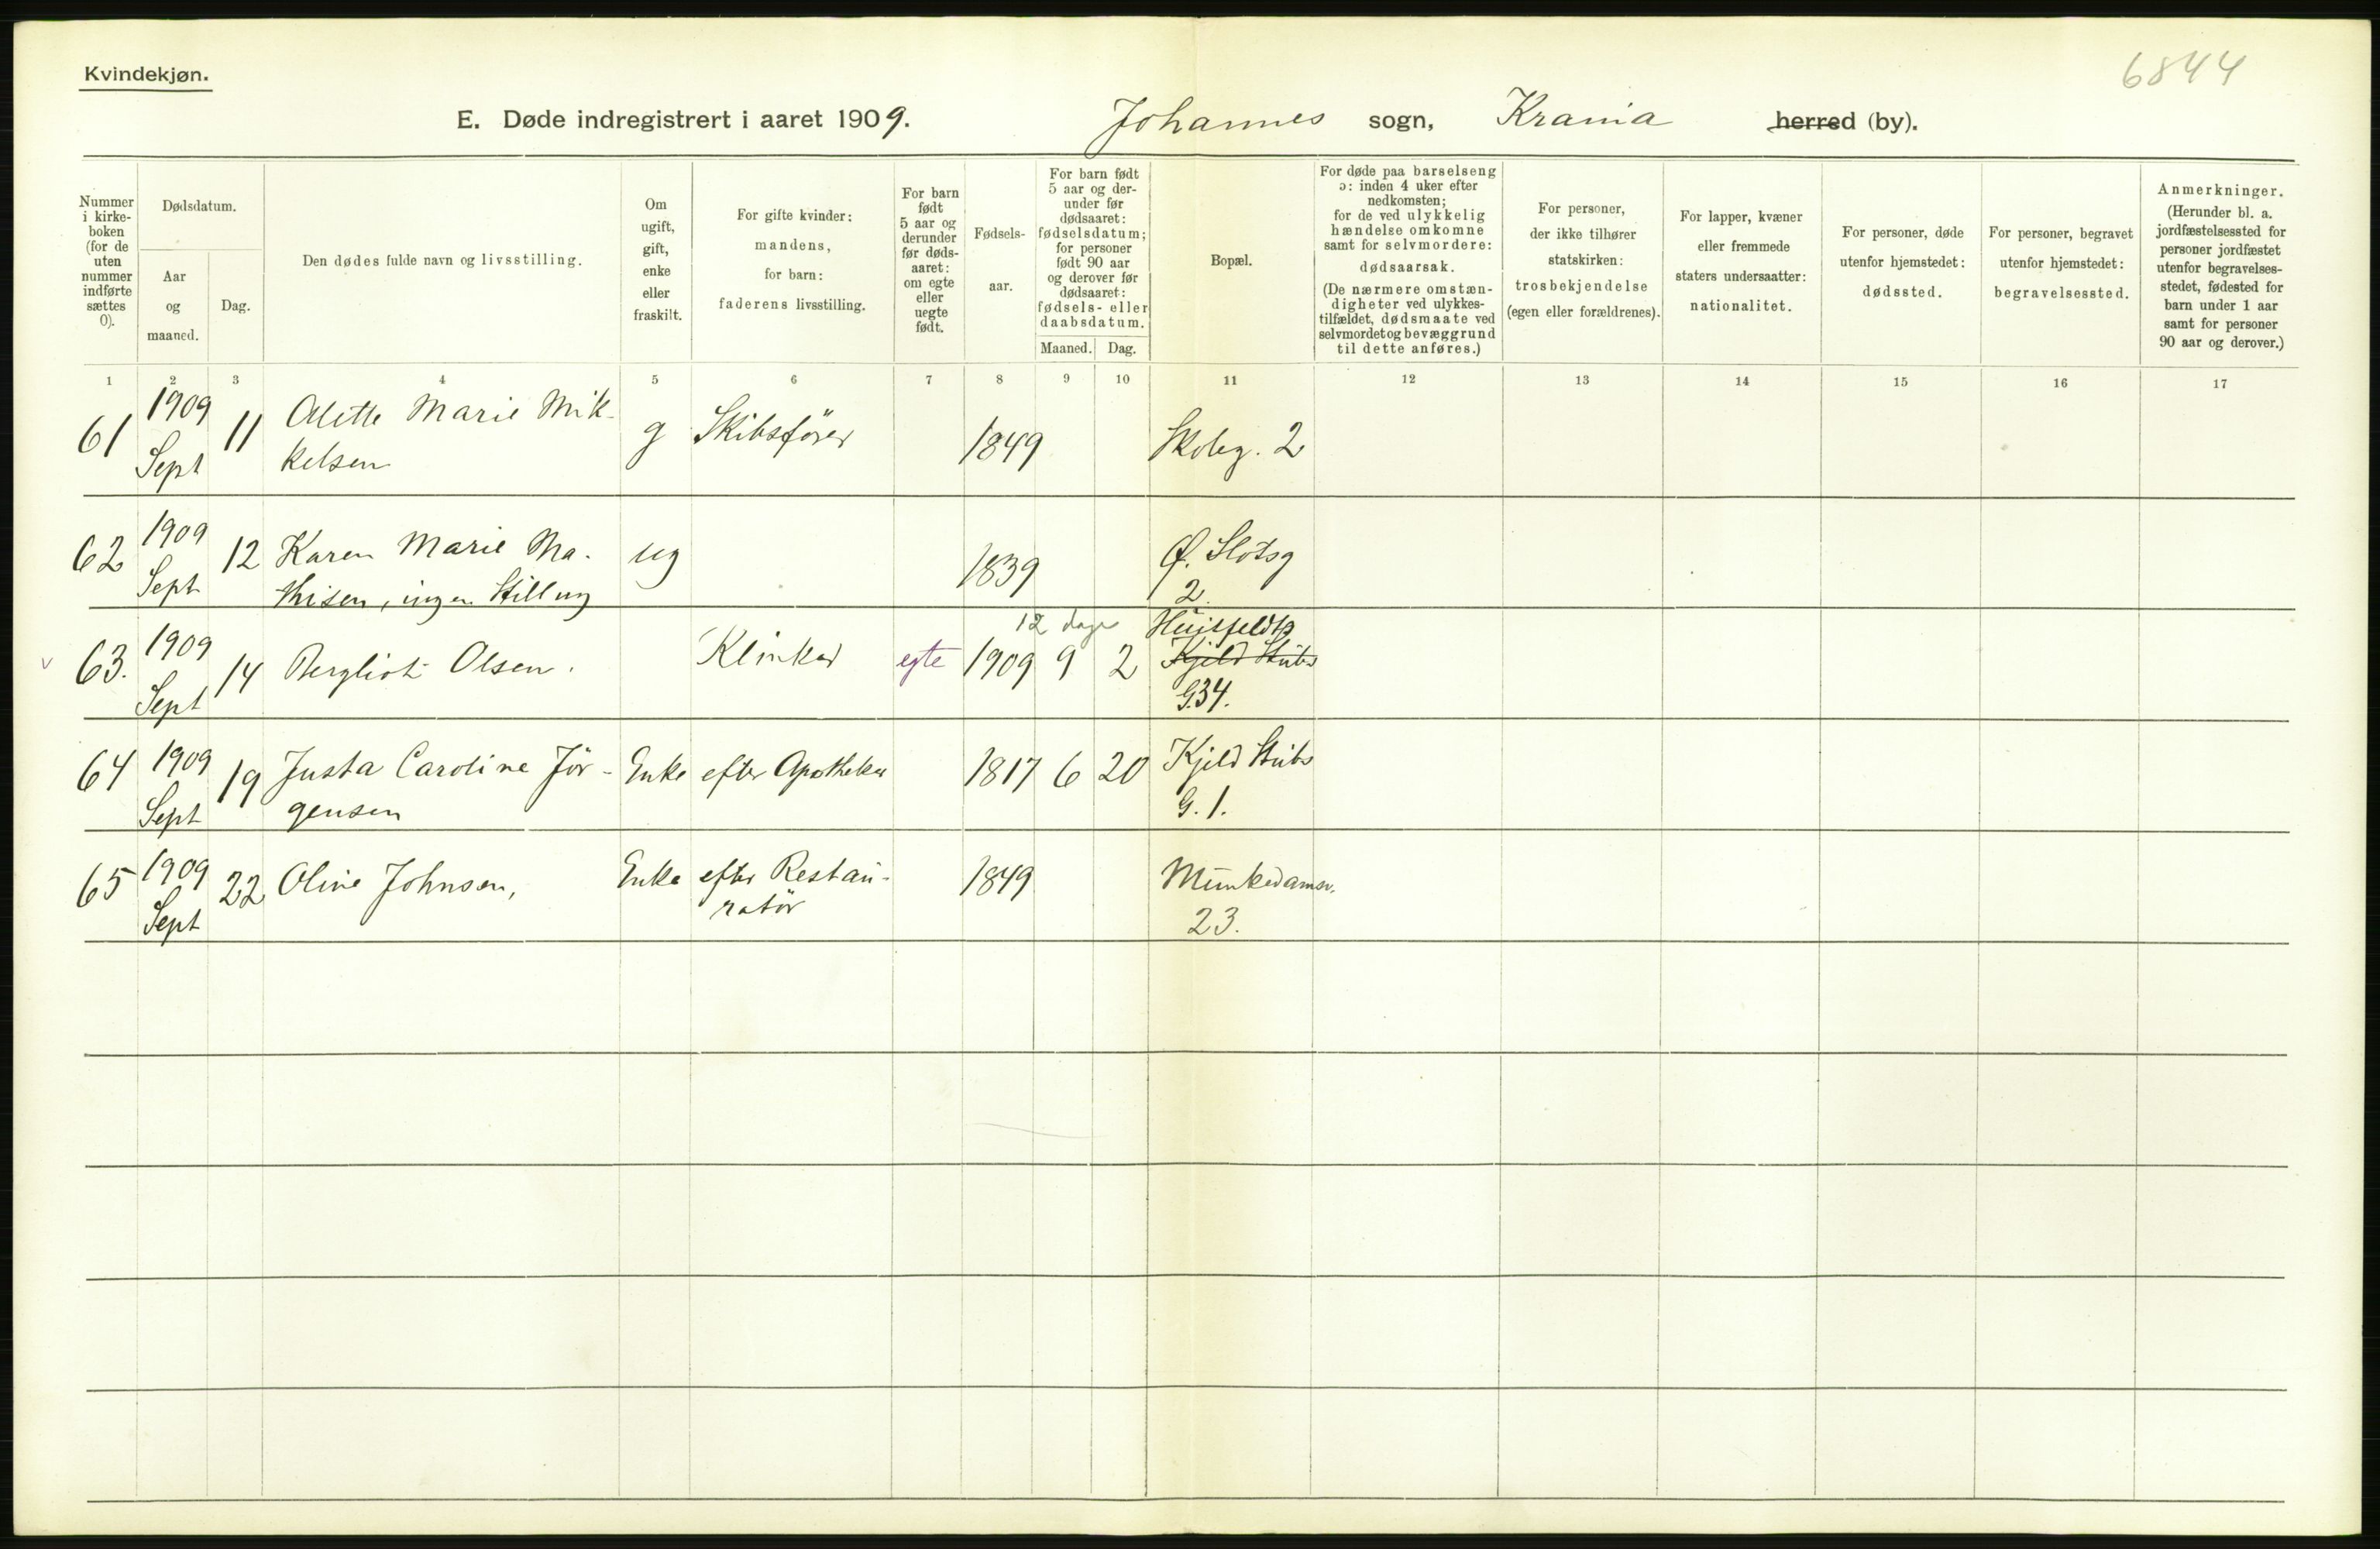 Kvindekjøn.
6844
E. Døde indregistrert i aaret 1909. Johannes sogn, Krania herred (by).
Nummer i kirke- boken (for de uten nummer indførte sættes 0).
Dødsdatum.
Aar og maaned.
Dag.
Den dødes fulde navn og livsstilling.
Om ugift, gift, enke eller fraskilt.
For gifte kvinder: mandens, for barn: faderens livsstilling.
For barn født 5 aar og derunder før døds- aaret: om egte eller uegte født.
Fødsels- aar.
For barn født 5 aar og der- under før dødsaaret: fødselsdatum; for personer født 90 aar og derover før dødsaaret: fødsels- eller daabsdatum.
Maaned. Dag.
Bopæl.
For døde paa barselseng ɔ: inden 4 uker efter nedkomsten; for de ved ulykkelig hændelse omkomne samt for selvmordere: dødsaarsak. (De nærmere omstæn- digheter ved ulykkes- tilfældet, dødsmaate ved selvmord et og bevæggrund til dette anføres.)
For personer, der ikke tilhører statskirken: trosbekjendelse (egen eller forældrenes).
For lapper, kvæner eller fremmede staters undersaatter: nationalitet.
For personer, døde utenfor hjemstedet: dødssted.
For personer, begravet utenfor hjemstedet: begravelsessted.
Anmerkninger. (Herunder bl. a. jordfæstelsessted for personer jordfæstet utenfor begravelses- stedet, fødested for barn under 1 aar samt for personer 90 aar og derover.)
1 2 3 4 5 6 7 8 9 10 11 12 13 14 15 16 17
61 1909 Sept 11 Alette Marie Mik- g Skibsfører 1849 Skoleg. 2
kelsen
62 1909 Sept 12 Karen Marie Ma- ug 1839 Ø. Slotsg
thisen, ingen Stilling 2.
12 dage Huitfeldts
v 63. 1909 Sept 14 Bergliot Olsen. Klinker egte 1909 9 2 Kjeld Stübs
G. 34.
64 1909 Sept 19 Justa Caroline Jör- Enke efter Apotheker 1817 6 20 Kjeld Stübs
gensen G. 1.
65 1909 Sept 22 Oline Johnsen, Enke efter Restau- 1849 Munkedamsv.
ratör 23.